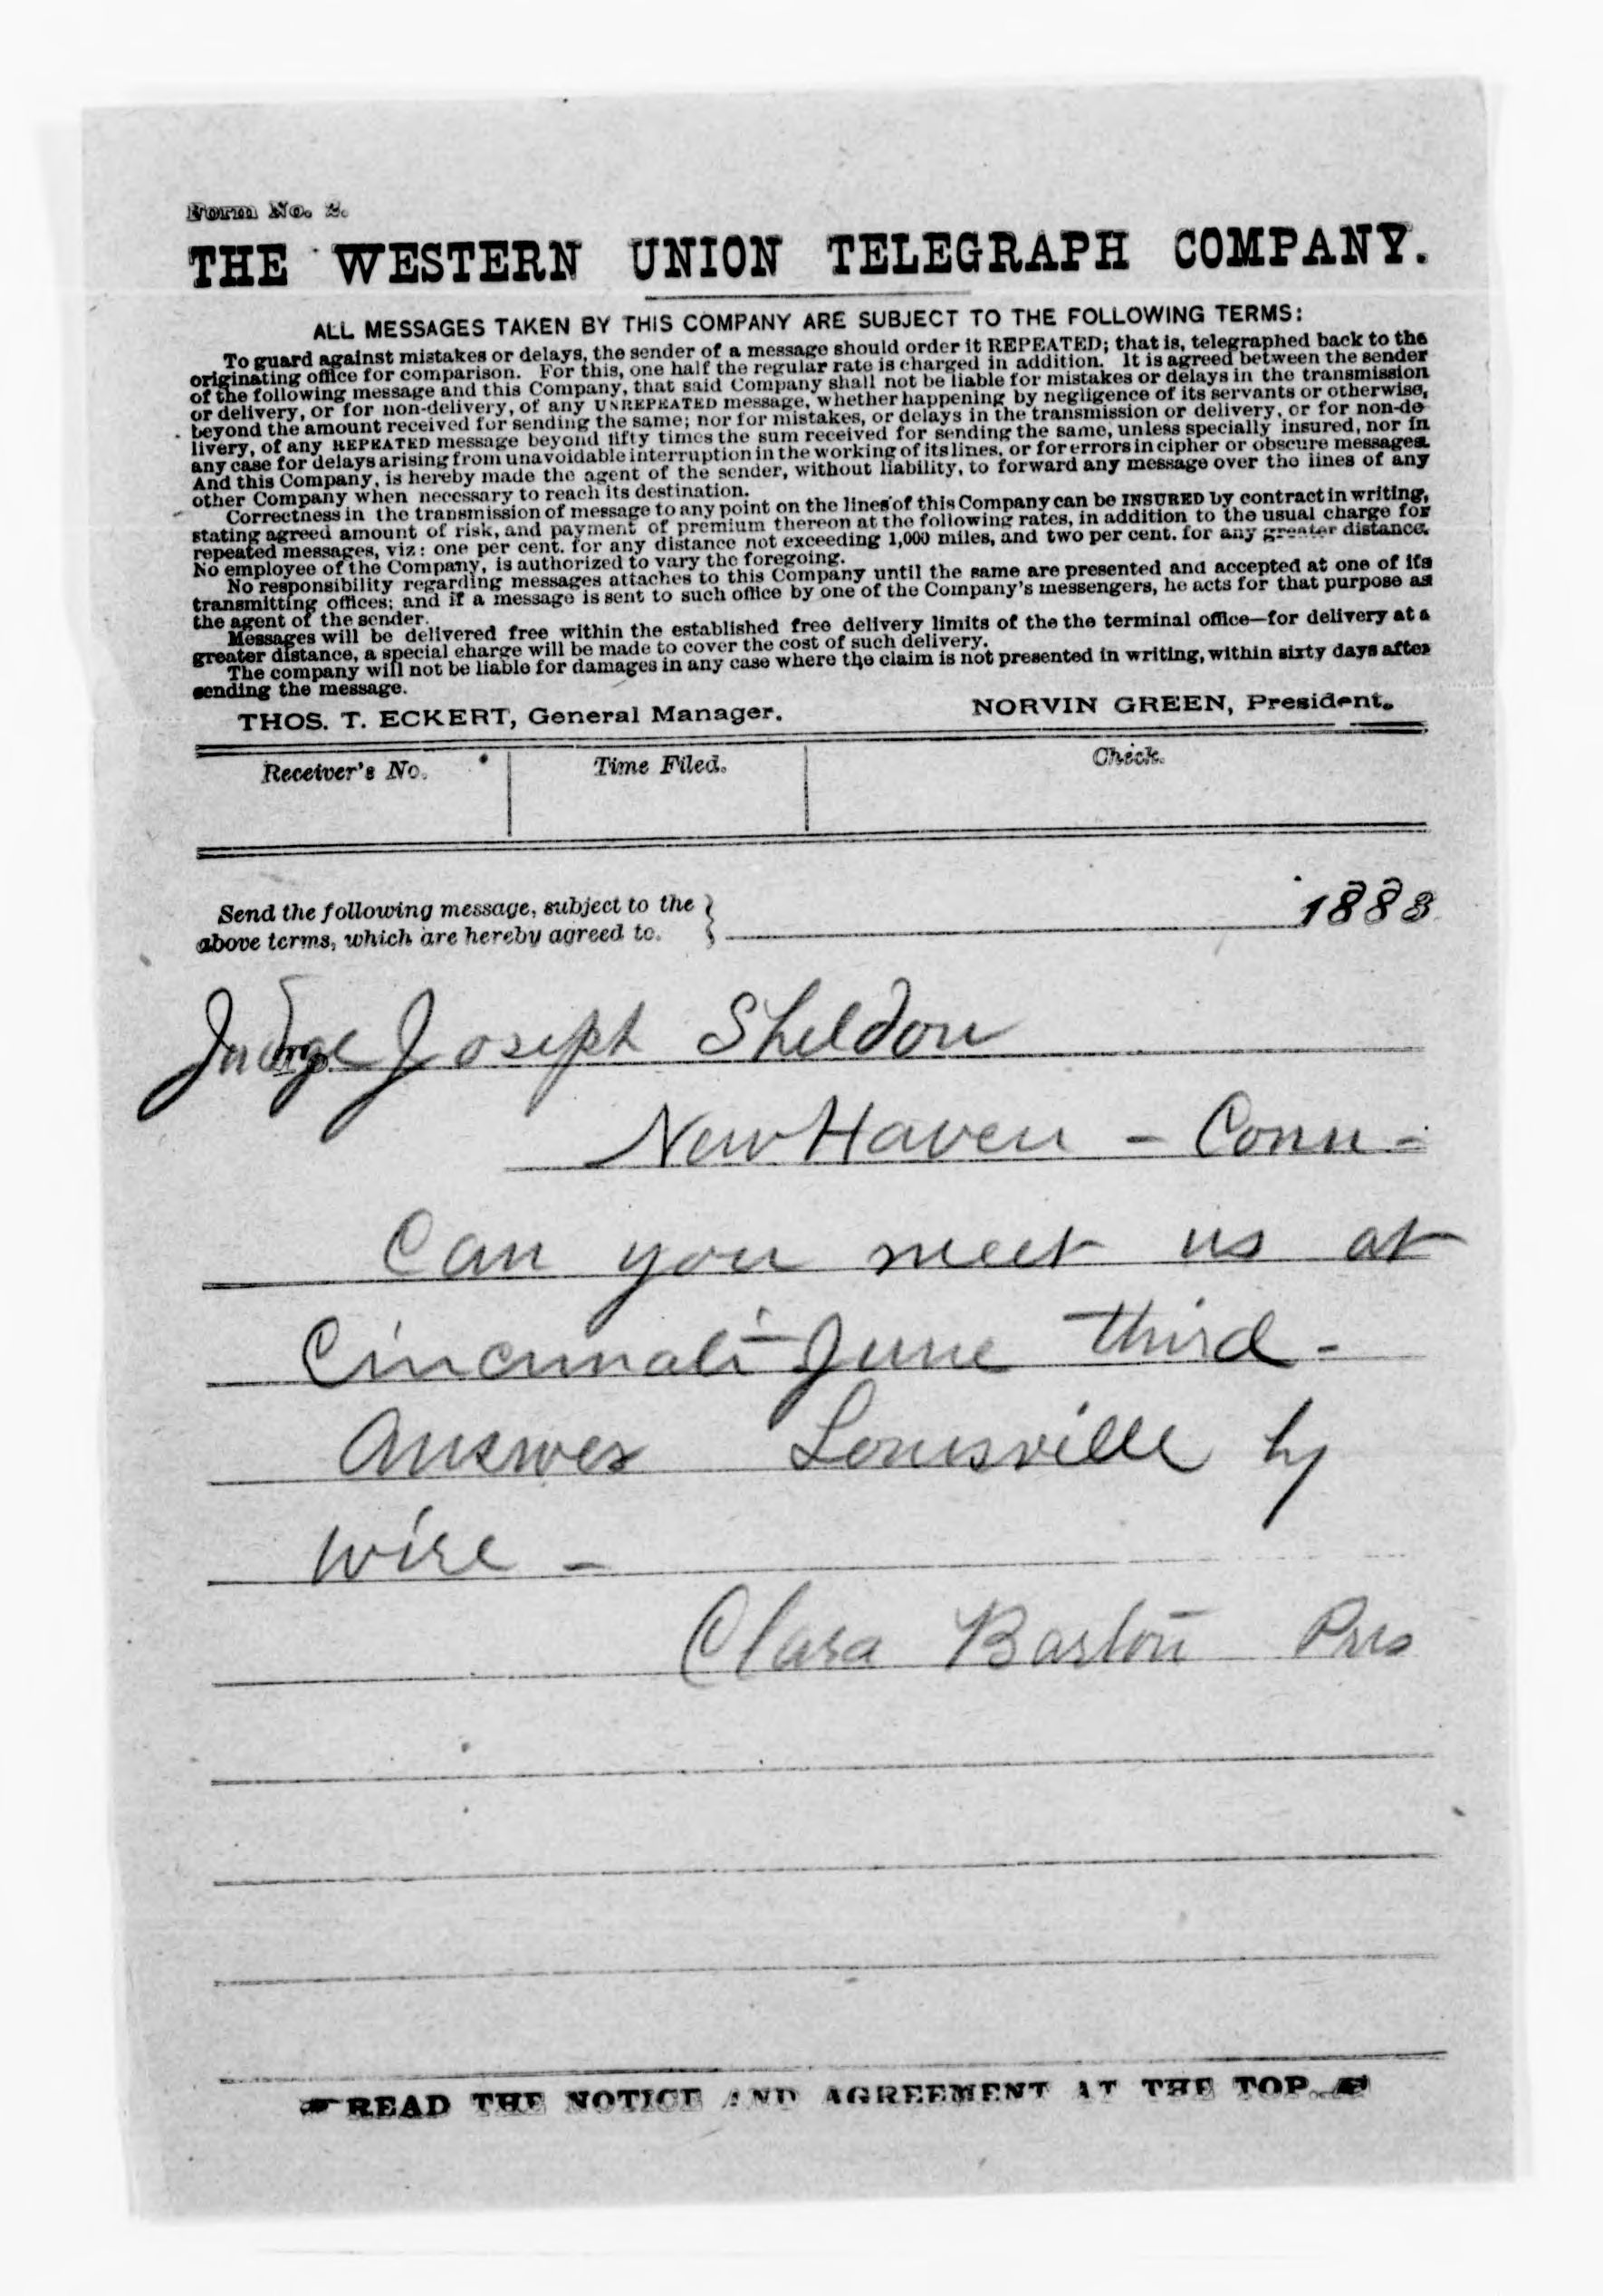 Form No. 2.
THE WESTERN UNION TELEGRAPH COMPANY.
ALL MESSAGES TAKEN BY THIS COMPANY ARE SUBJECT TO THE FOLLOWING TERMS:
To guard against mistakes or delays, the sender of a message should order it REPEATED; that is, telegraphed back to the
originating office for comparison. For this, one half the regular rate is charged in addition. It is agreed between the sender
of the following message and this Company, that said Company shall not be liable for mistakes or delays in the transmission
or delivery, or for non-delivery, of any UNREPEATED message, whether happening by negligence of its servants or otherwise,
beyond the amount received for sending the same; nor for mistakes, or delays in the transmission or delivery, or for non-de
livery, of any REPEATED message beyond fifty times the sum received for sending the same, unless specially insured, nor in
any case for delays arising from unavoidable interruption in the working of its lines, or for errors in cipher or obscure messages.
And this Company, is hereby made the agent of the sender, without liability, to forward any message over the lines of any
other Company when necessary to reach its destination.
Correctness in the transmission of message to any point on the lines of this Company can be INSURED by contract in writing,
stating agreed amount of risk, and payment of premium thereon at the following rates, in addition to the usual charge for
repeated messages, viz: one per cent. for any distance not exceeding 1,000 miles, and two per cent. for any greater distance.
No employee of the Company, is authorized to vary the foregoing.
No responsibility regarding messages attaches to this Company until the same are presented and accepted at one of its
transmitting offices; and if a message is sent to such office by one of the Company's messengers, he acts for that purpose as
the agent of the sender.
Messages will be delivered free within the established free delivery limits of the the terminal office—for delivery at a
greater distance, a special charge will be made to cover the cost of such delivery.
The company will not be liable for damages in any case where the claim is not presented in writing, within sixty days after
sending the message.
THOS. T. ECKERT, General Manager. NORVIN GREEN, President.
Receiver's No. Time Filed. Check.
Send the following message, subject to the
above terms, which are hereby agreed to. 1888
Judge Joseph Sheldon
New Haven - Conn -
Can you meet us at
Cincinnati June third -
Answer Louisville by
wire -
Clara Barton Pres
READ THE NOTICE AND AGREEMENT AT THE TOP.